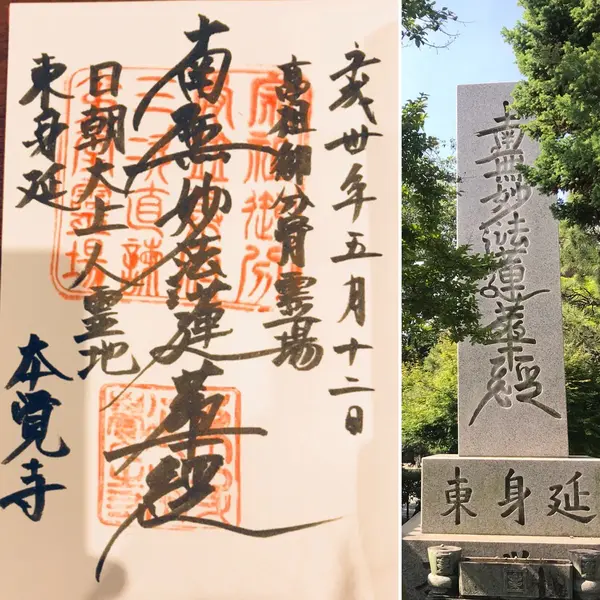 平成卅年五月十二日
高祖御分骨霊場
南無妙法蓮華経
日朝大上人霊地
東身延
本覚寺
南無妙法蓮華経
東身延